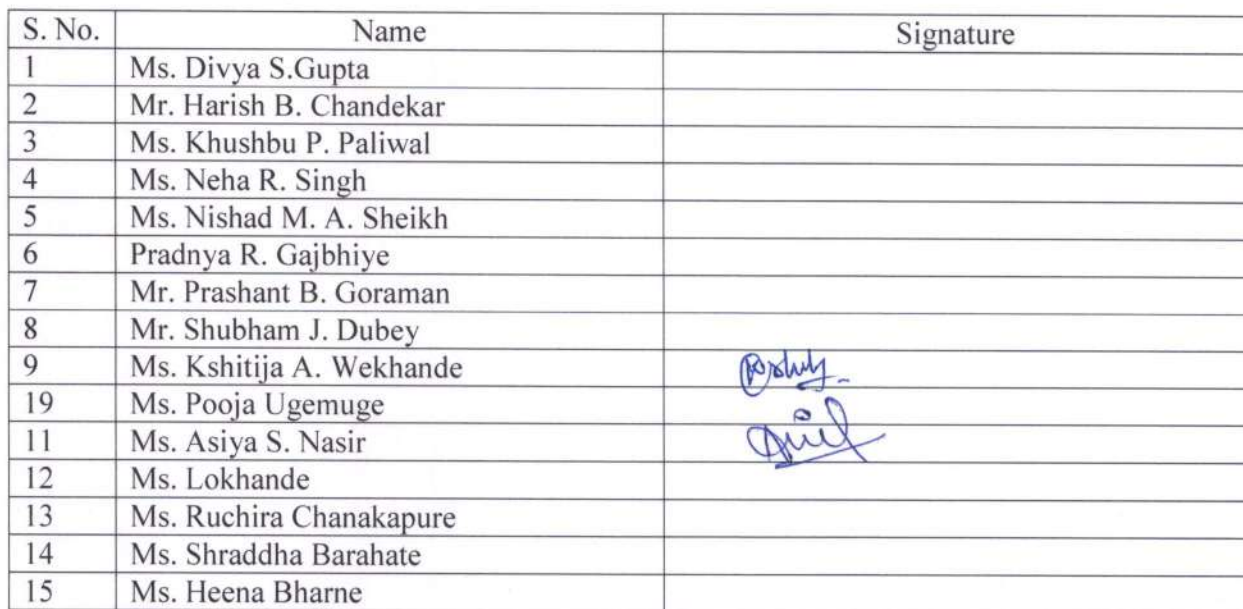 S. No. Name Signature
1 Ms. Divya S.Gupta
2 Mr. Harish B. Chandekar
3 Ms. Khushbu P. Paliwal
4 Ms. Neha R. Singh
5 Ms. Nishad M. A. Sheikh
6 Pradnya R. Gajbhiye
7 Mr. Prashant B. Goraman
8 Mr. Shubham J. Dubey
9 Ms. Kshitija A. Wekhande
19 Ms. Pooja Ugemuge
11 Ms. Asiya S. Nasir
12 Ms. Lokhande
13 Ms. Ruchira Chanakapure
14 Ms. Shraddha Barahate
15 Ms. Heena Bharne